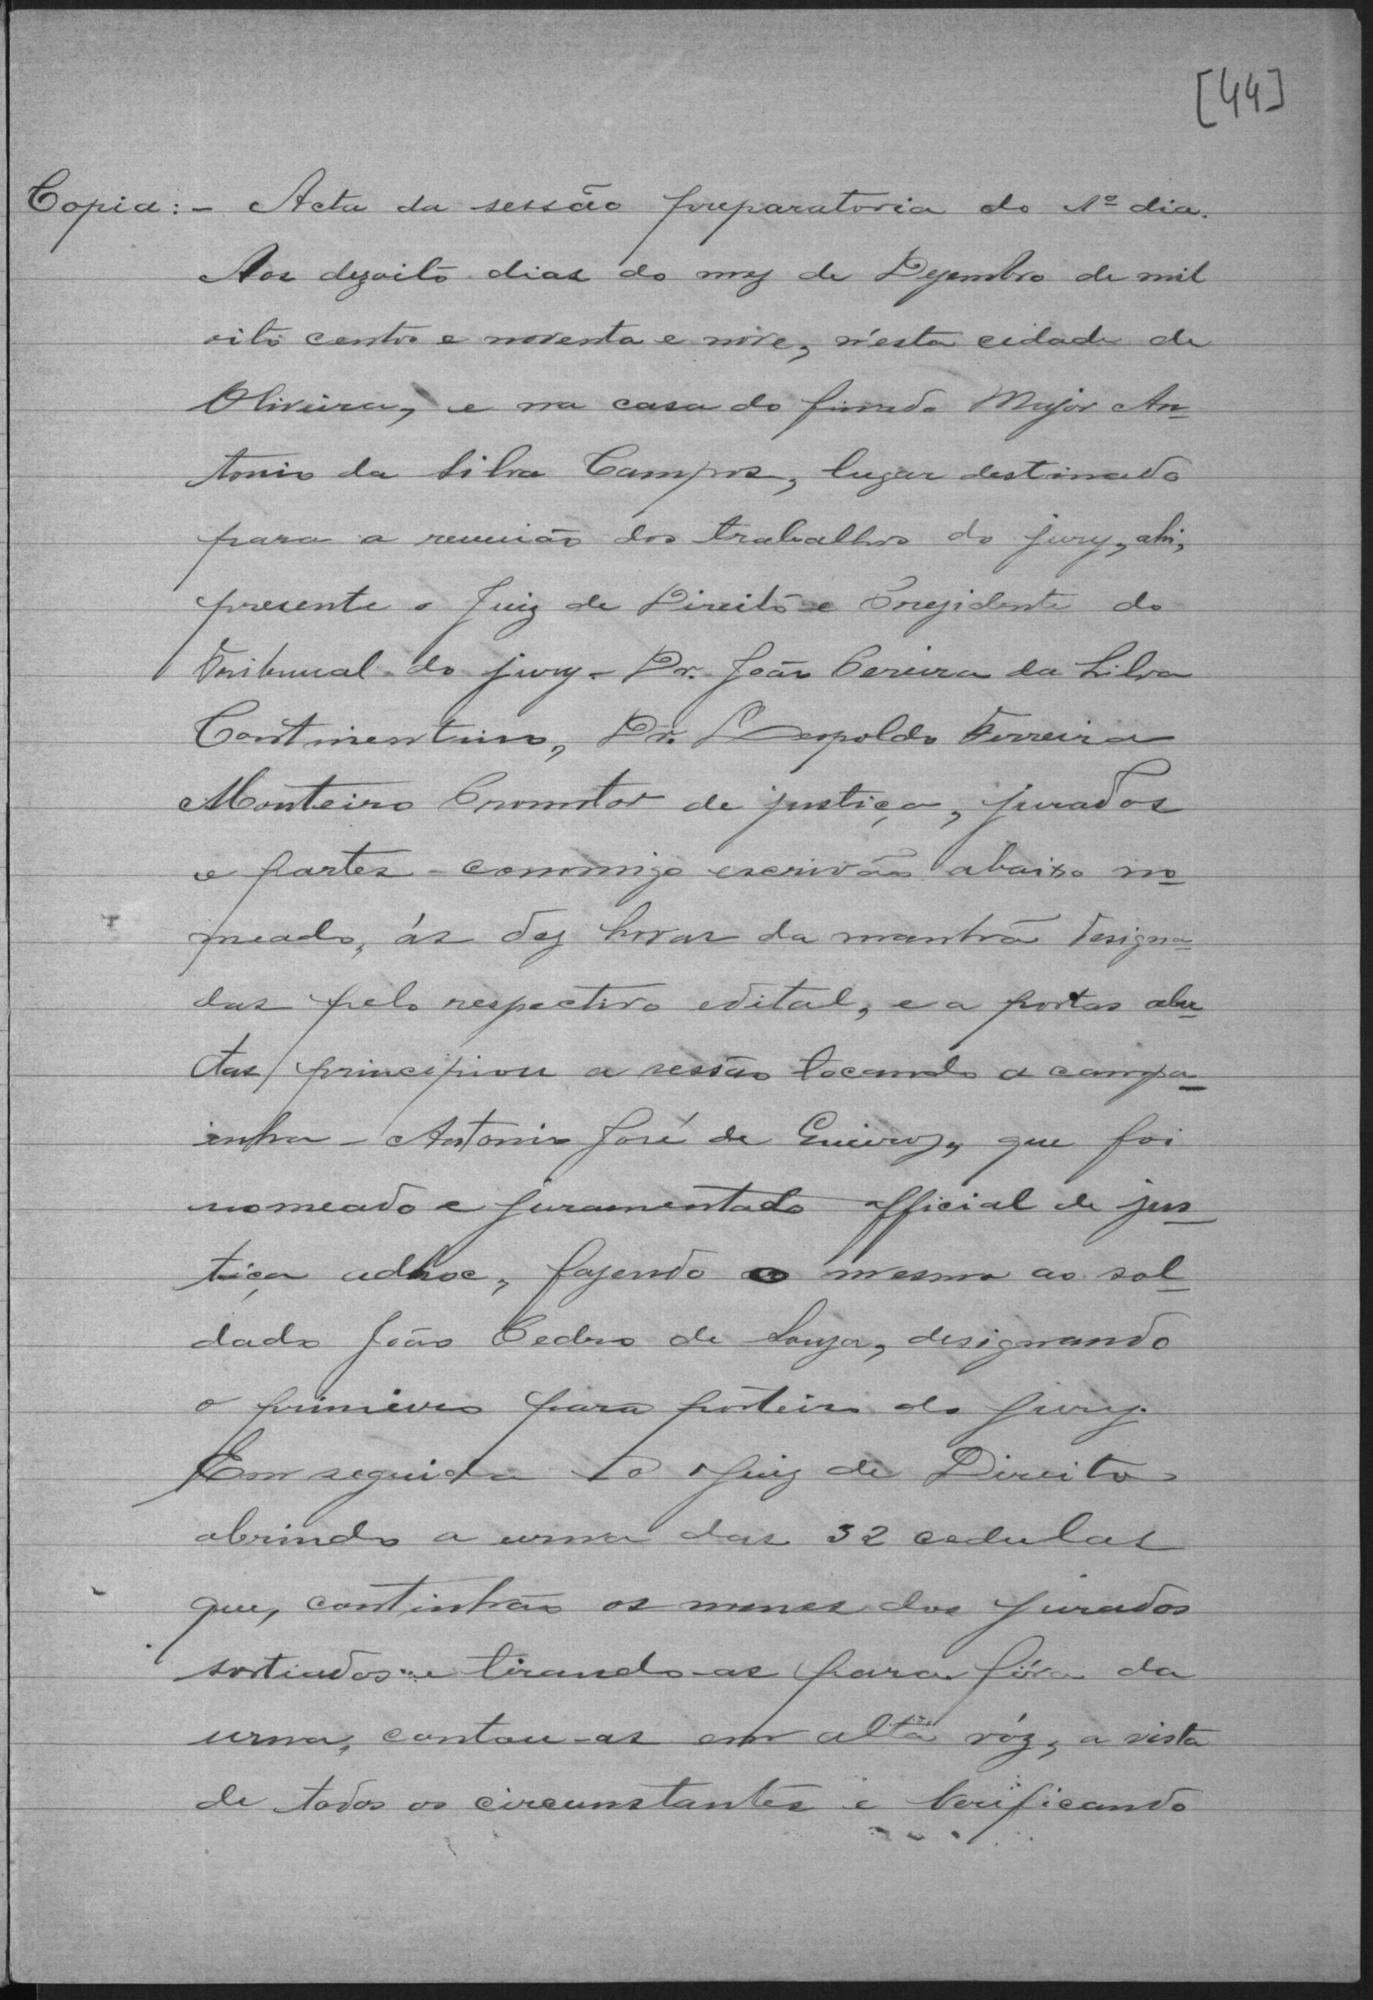 [44]
Copia: - Acta da sessão preparatoria do 1º dia.
Aos dezoito dias do mez de Dezembro de mil
oito centos e noventa e nove, n'esta cidade de
Oliveira, e na casa do finado Major An-
tonio da Silva Campos, lugar destinado
para a reunião dos trabalhos do jury, ahi,
presente o Juiz de Direito e Prezidente do
Tribunal do jury - Dr. João Pereira da Silva
Continentino, Dr. Leopoldo Ferreira
Monteiro Promotor de justiça, jurados
e partes - commigo escrivão abaixo no-
meado, ás dez horas da manhã designa-
das pelo respectivo edital, e a portas aber-
tas, principiou a sessão tocando a campa-
inha - Antonio José de Queiroz, que foi
nomeado e juramentado official de jus-
tiça adhoc, fazendo o mesmo ao sol-
dado João Pedro de Souza, designando
o primeiro para porteiro do jury.
Em seguida o Juiz de Direito
abrindo a urna das 32 cedulas
que, continhão os nomes dos jurados
sortiados e tirando-as para fóra da
urna, contou-as em alta vóz, a vista
de todos os circunstantes e verificando